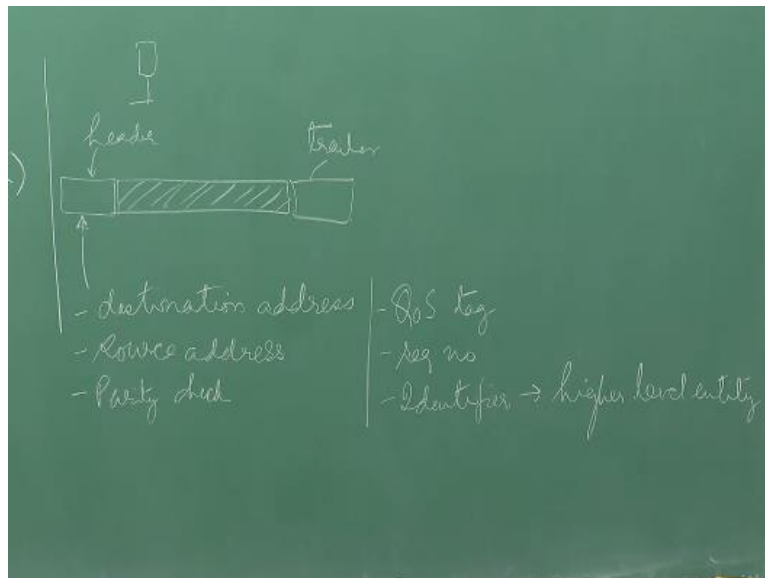 header
trailer
- destination address
- source address
- Parity check
- QoS tag
- seq no
- Identifier → higher level entity